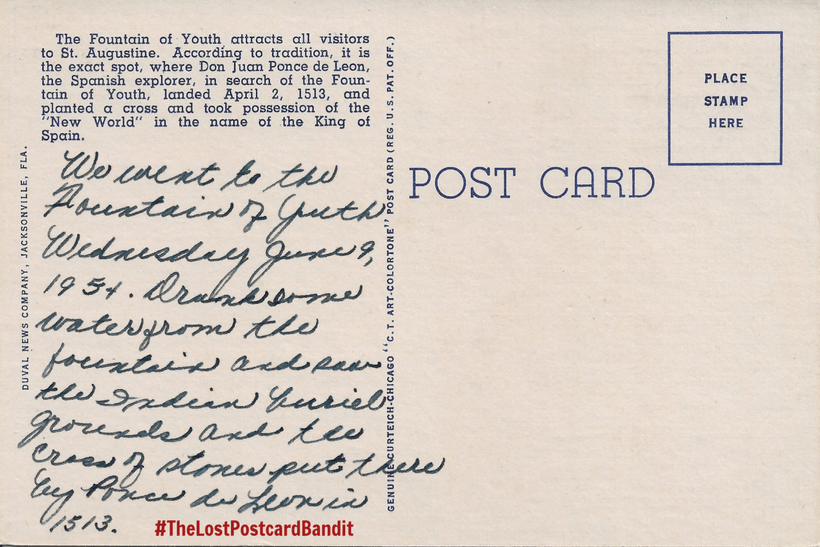 The Fountain of Youth attracts all visitors
to St. Augustine. According to tradition, it is
the exact spot, where Don Juan Ponce de Leon,
the Spanish explorer, in search of the Foun-
tain of Youth, landed April 2, 1513, and
planted a cross and took possession of the
"New World" in the name of the King of
Spain.
We went to the
Fountain of Youth
Wednesday June 9,
1954. Drank some
water from the
fountain and saw
the Indian buriel
grounds and the
cross of stones put there
by Ponce de Leon in
1513.
#TheLostPostcardBandit
DUVAL NEWS COMPANY, JACKSONVILLE, FLA.
GENUINE CURTEICH-CHICAGO "C.T. ART-COLORTONE" POST CARD (REG. U.S. PAT. OFF.)
POST CARD
PLACE
STAMP
HERE